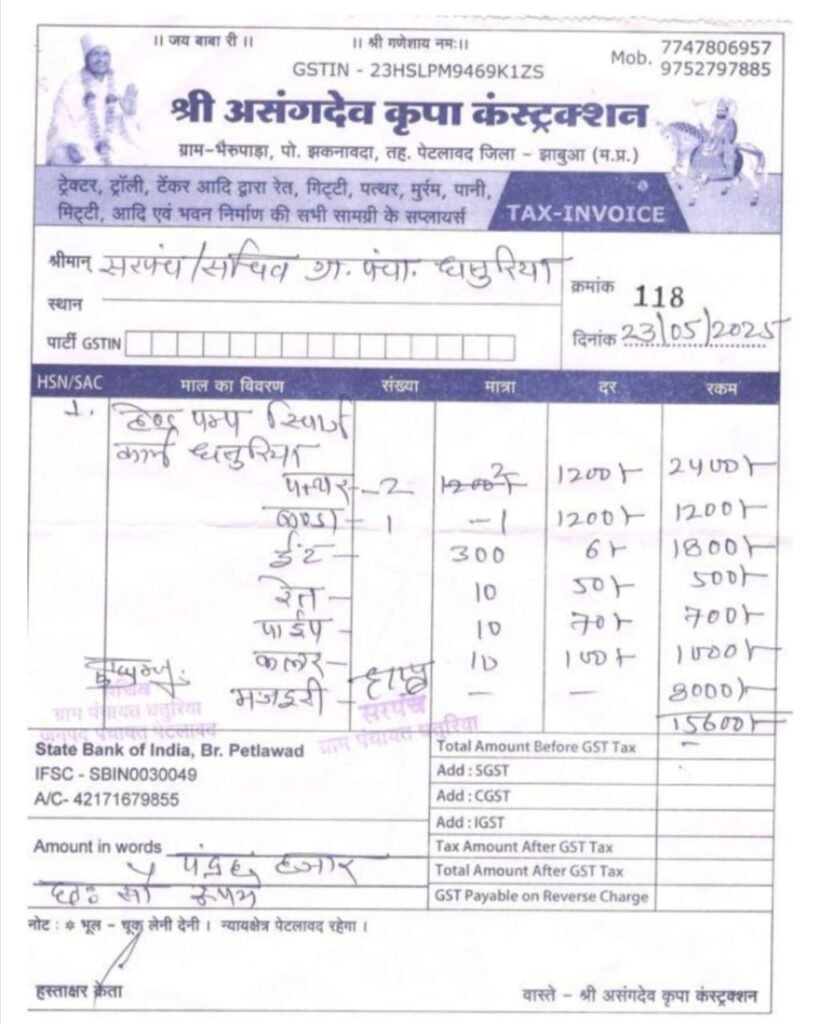 ।। जय बाबा री ।।
।। श्री गणेशाय नमः।।
Mob. 7747806957
9752797885
GSTIN - 23HSLPM9469K1ZS
श्री असंगदेव कृपा कंस्ट्रक्शन
ग्राम-भैरुपाड़ा, पो. झकनावदा, तह. पेटलावद जिला - झाबुआ (म.प्र.)
ट्रेक्टर, ट्रॉली, टेंकर आदि द्वारा रेत, गिट्टी, पत्थर, मुर्रम, पानी,
मिट्टी, आदि एवं भवन निर्माण की सभी सामग्री के सप्लायर्स
TAX-INVOICE
श्रीमान् सरपंच/सचिव ग्रा. पंचा. धतुरिया
स्थान
पार्टी GSTIN
क्रमांक 118
दिनांक 23/05/2025
HSN/SAC माल का विवरण संख्या मात्रा दर रकम
1. हेण्ड पम्प रिचार्ज
कार्य धतुरिया
पत्थर - 2 2 1200/- 2400/-
1 - 1 1200/- 1200/-
ईंट - 300 6/- 1800/-
रेत - 10 50/- 500/-
पाईप - 10 70/- 700/-
कलर - 10 100/- 1000/-
मजदुरी - - - 8000/-
15600/-
सचिव
ग्राम पंचायत धतुरिया
जनपद पंचायत पेटलावद
सरपंच
ग्राम पंचायत धतुरिया
State Bank of India, Br. Petlawad
IFSC - SBIN0030049
A/C- 42171679855
Total Amount Before GST Tax -
Add : SGST
Add : CGST
Add : IGST
Tax Amount After GST Tax
Total Amount After GST Tax
GST Payable on Reverse Charge
Amount in words पंद्रह हजार
छः सौ रूपये
नोट : * भूल - चूक लेनी देनी । न्यायक्षेत्र पेटलावद रहेगा ।
हस्ताक्षर क्रेता
वास्ते - श्री असंगदेव कृपा कंस्ट्रक्शन